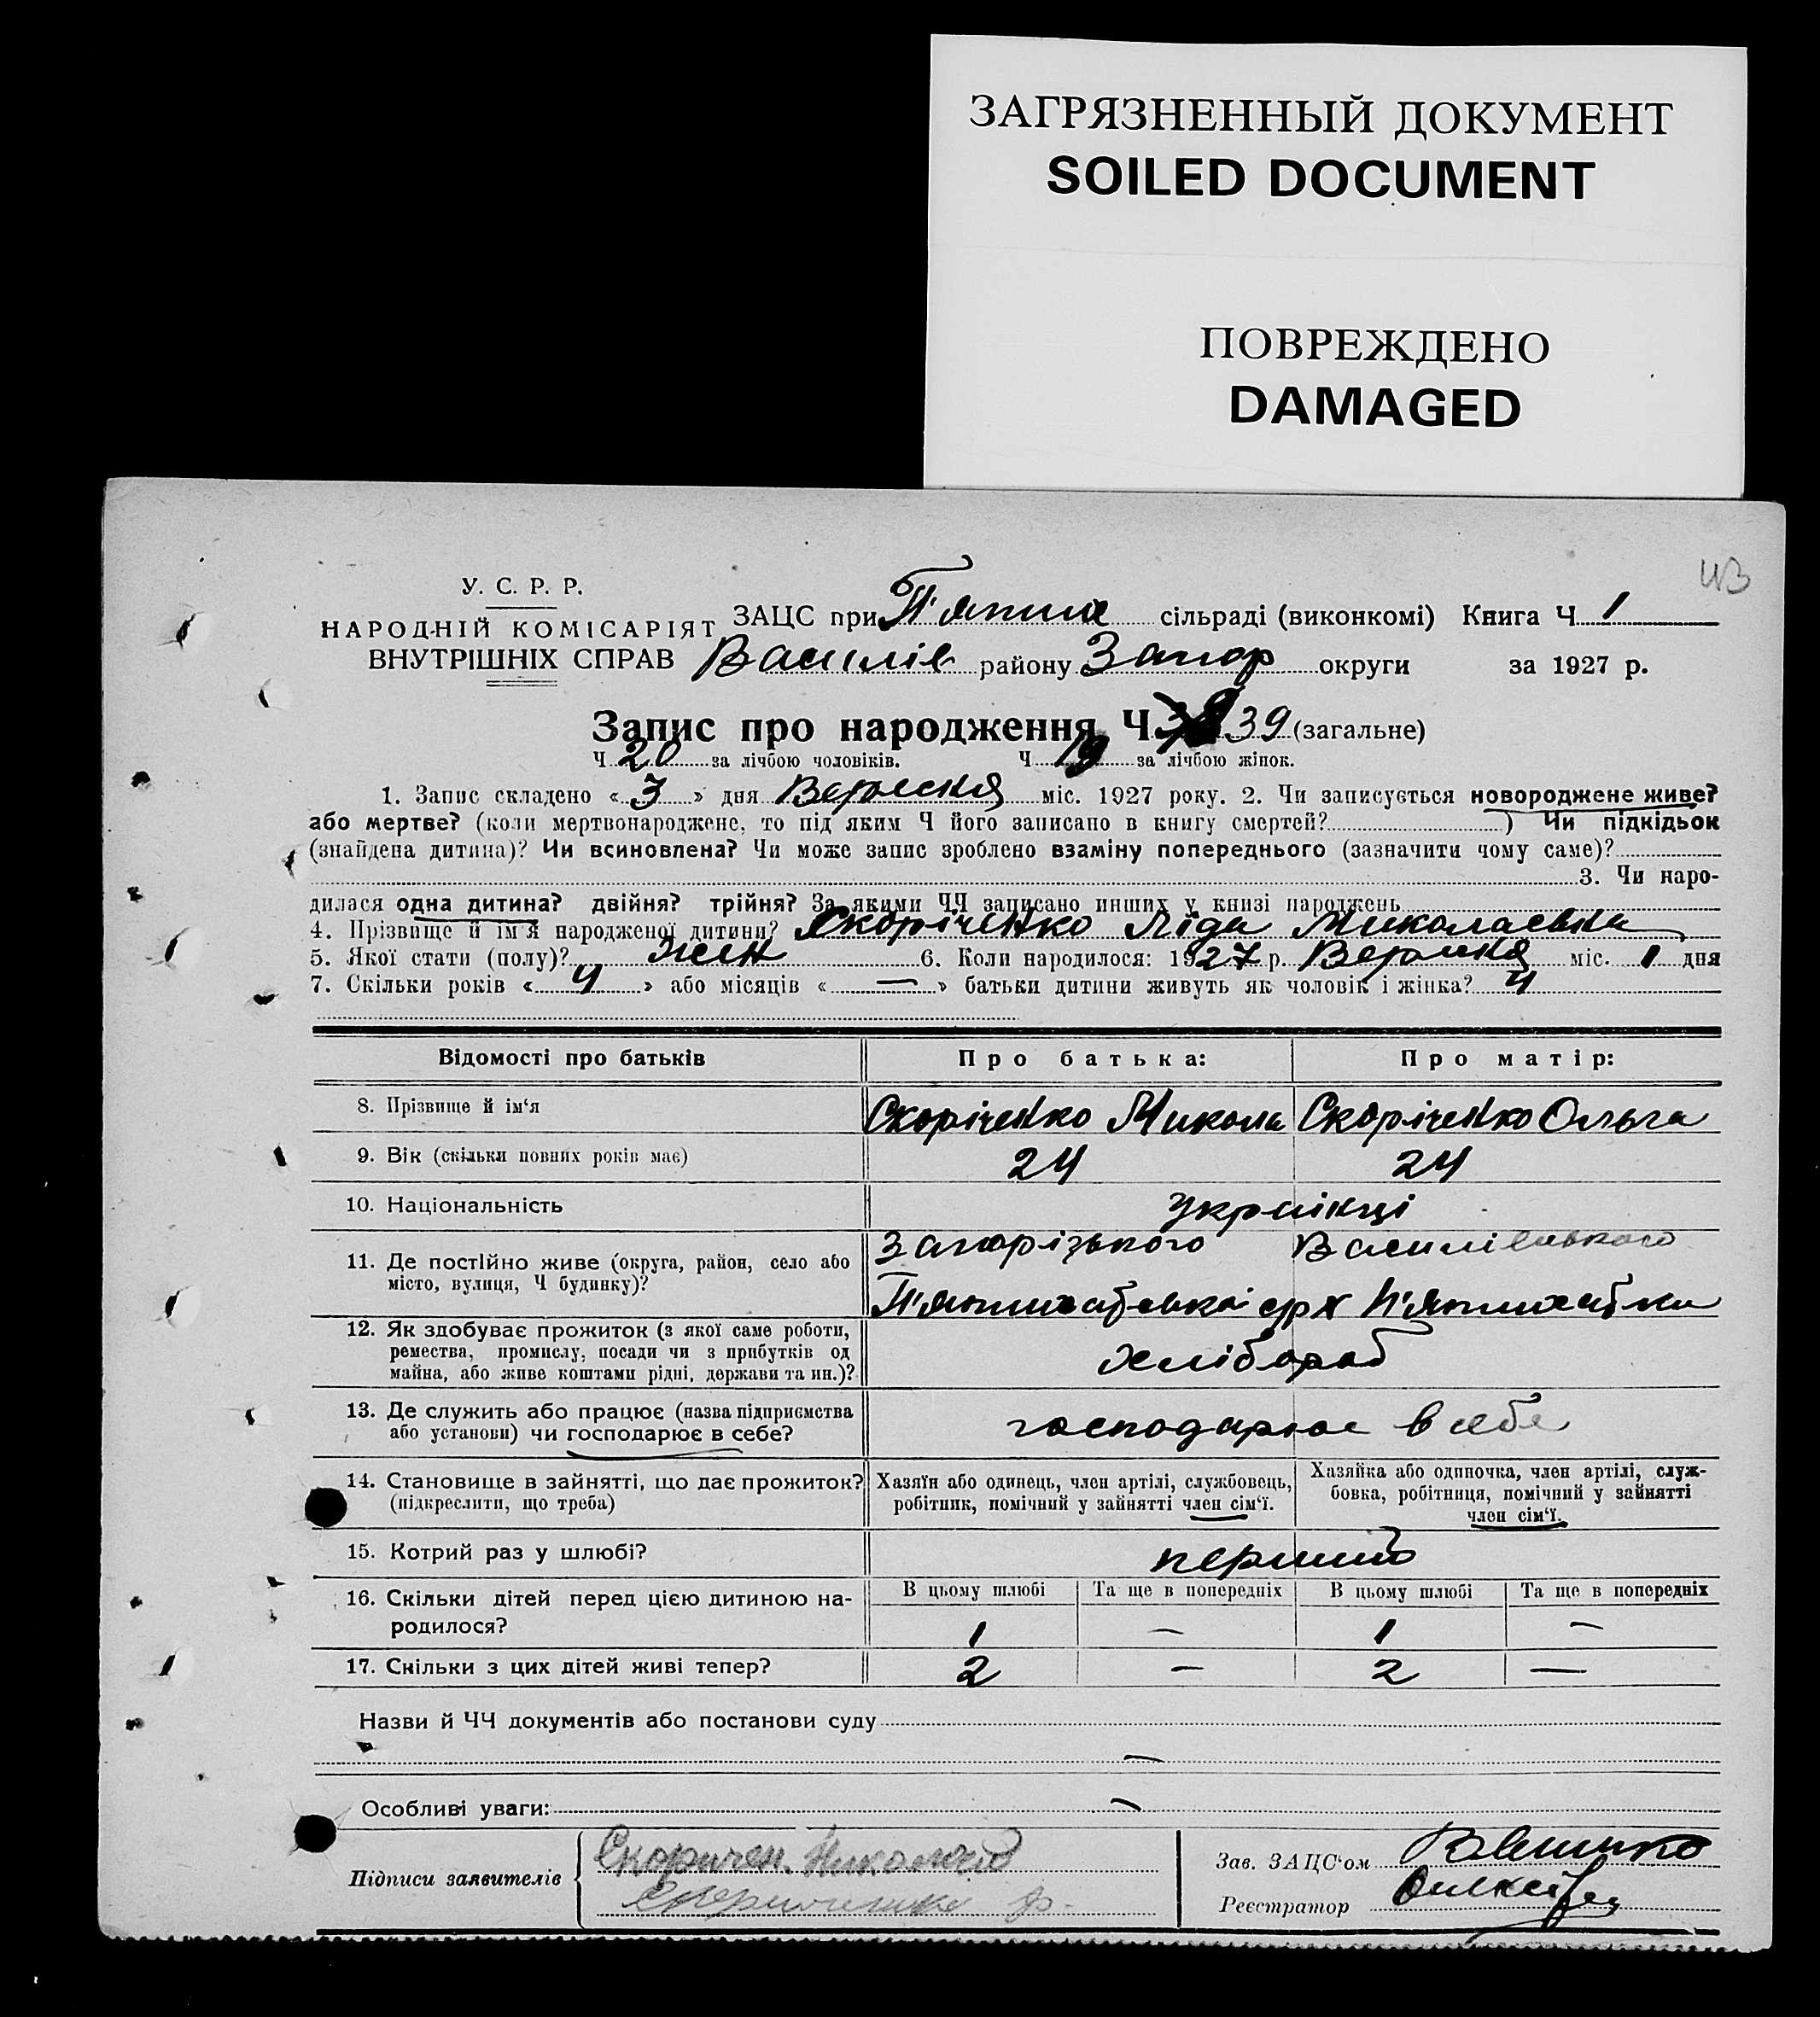 ЗАГРЯЗНЕННЫЙ ДОКУМЕНТ
SOILED DOCUMENT
ПОВРЕЖДЕНО
DAMAGED
43
У. С. Р. Р.
НАРОДНІЙ КОМІСАРІЯТ
ВНУТРІШНІХ СПРАВ
ЗАЦС при П'ятих сільраді (виконкомі) Книга Ч 1
Василів району Запор округи за 1927 р.
Запис про народження Ч 39 (загальне)
Ч 20 за лічбою чоловіків. Ч 19 за лічбою жінок.
1. Запис складено « 3 » дня Вересня міс. 1927 року. 2. Чи записується новороджене живе?
або мертве? (коли мертвонароджене, то під яким Ч його записано в книгу смертей? ) Чи підкідьок
(знайдена дитина)? Чи всиновлена? Чи може запис зроблено взаміну попереднього (зазначити чому саме)?
3. Чи наро-
дилася одна дитина? двійня? трійня? За якими ЧЧ записано инших у книзі народжень
4. Прізвище й ім'я народженої дитини? Скоріченко Ліда Миколаєвна
5. Якої стати (полу)? жен 6. Коли народилося: 1927 р. Вересня міс. 1 дня
7. Скільки років « 4 » або місяців « — » батьки дитини живуть як чоловік і жінка? 4
Відомості про батьків Про батька: Про матір:
8. Прізвище й ім'я Скоріченко Микола Скоріченко Ольга
9. Вік (скільки повних років має) 24 24
10. Національність Українці
11. Де постійно живе (округа, район, село або
місто, вулиця, Ч будинку)?
Запорізького Василівського
П'ятихатської П'ятихатки
12. Як здобуває прожиток (з якої саме роботи,
ремества, промислу, посади чи з прибутків од
майна, або живе коштами рідні, держави та ин.)?
хлібороб
13. Де служить або працює (назва підприємства
або установи) чи господарює в себе?
господарює в себе
14. Становище в зайнятті, що дає прожиток?
(підкреслити, що треба)
Хазяїн або одинець, член артілі, службовець,
робітник, помічний у зайнятті член сім'ї.
Хазяйка або одиночка, член артілі, служ-
бовка, робітниця, помічний у зайнятті
член сім'ї.
15. Котрий раз у шлюбі? перший
16. Скільки дітей перед цією дитиною на-
родилося?
В цьому шлюбі Та ще в попередніх В цьому шлюбі Та ще в попередніх
1 — 1 —
17. Скільки з цих дітей живі тепер? 2 — 2 —
Назви й ЧЧ документів або постанови суду
—
Особливі уваги: —
Підписи заявителів
Зав. ЗАЦС'ом
Реєстратор